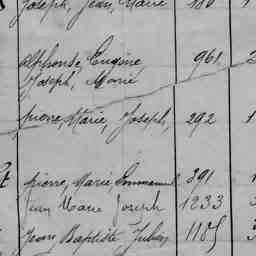 Joseph, Jean, Marie 180 1
Alphonse, Eugène 961 2
Joseph, Marie
Pierre, Marie, Joseph, 292 1
Pierre, Marie Emmanuel 391 1
Jean Marie Joseph 1233 3
Jean Baptiste Julien 1185 3